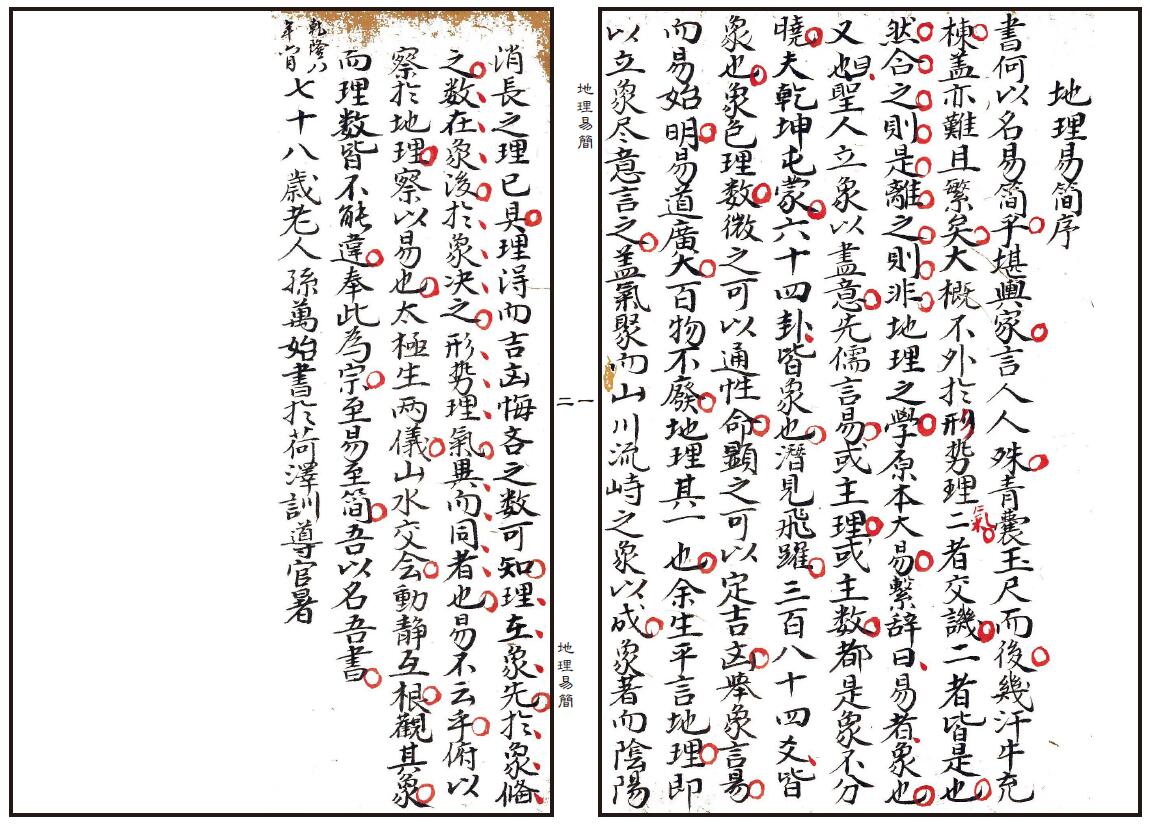 地理易简序
書何以名易简乎堪輿家言人人殊青囊玉尺而後幾汗牛充
棟蓋亦難且繁矣大概不外於形势理氣二者交譏二者皆是也
然合之則是離之則非地理之學原本大易繫辞曰易者象也
又曰聖人立象以盡意先儒言易或主理或主数都是象不分
曉夫乾坤屯蒙六十四卦皆象也潛見飛躍三百八十四爻皆
象也象色理数微之可以通性命顯之可以定吉凶舉象言易
而易始明易道廣大百物不廢地理其一也余生平言地理即
以立象尽意言之盖氣聚而山川流峙之象以成象著而陰陽
消長之理已具理淂而吉凶悔吝之数可知理在象先於象俻
之数在象後於象决之形势理氣異而同者也易不云乎俯以
察於地理察以易也太極生两儀山水交会動静互根觀其象
而理数皆不能違奉此為宗至易至简吾以名吾書
乾隆八年 七十八歲老人孫萬始書於荷澤訓導官署
地理易簡
一
二
地理易簡